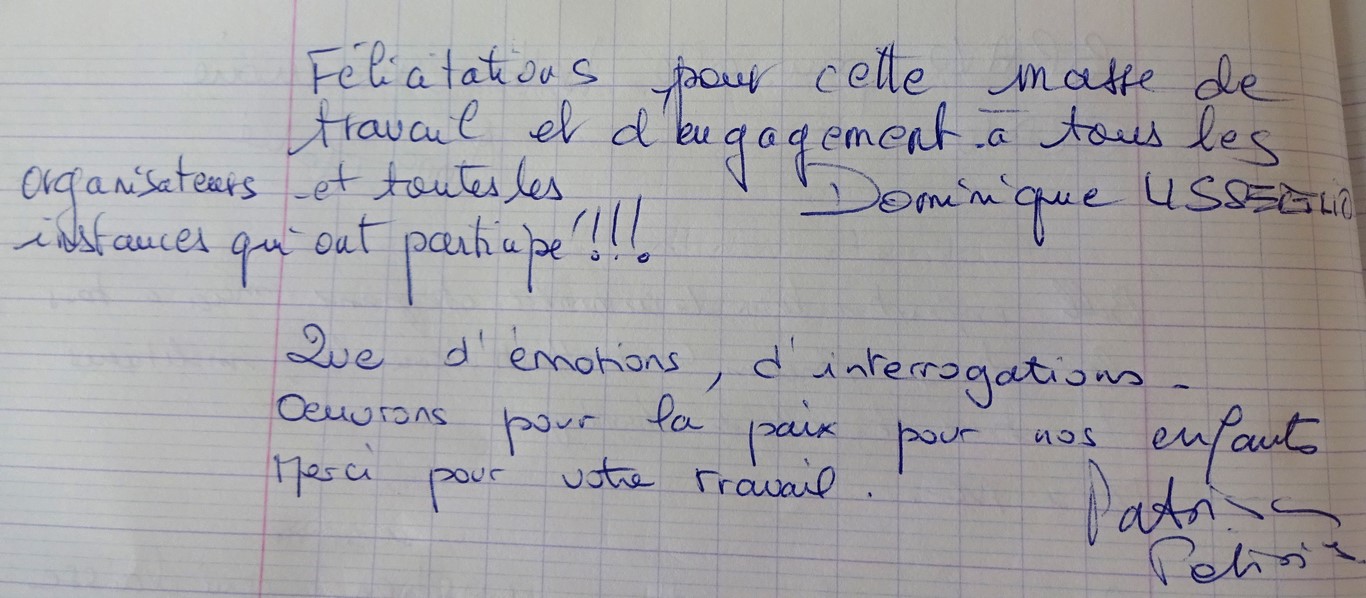 Félicitations pour cette masse de
travail et d'engagement à tous les
organisateurs et toutes les
instances qui ont participé !!!!
Dominique USSEGLIO
Que d'émotions, d'interrogations.
Oeuvrons pour la paix pour nos enfants
Merci pour votre travail.